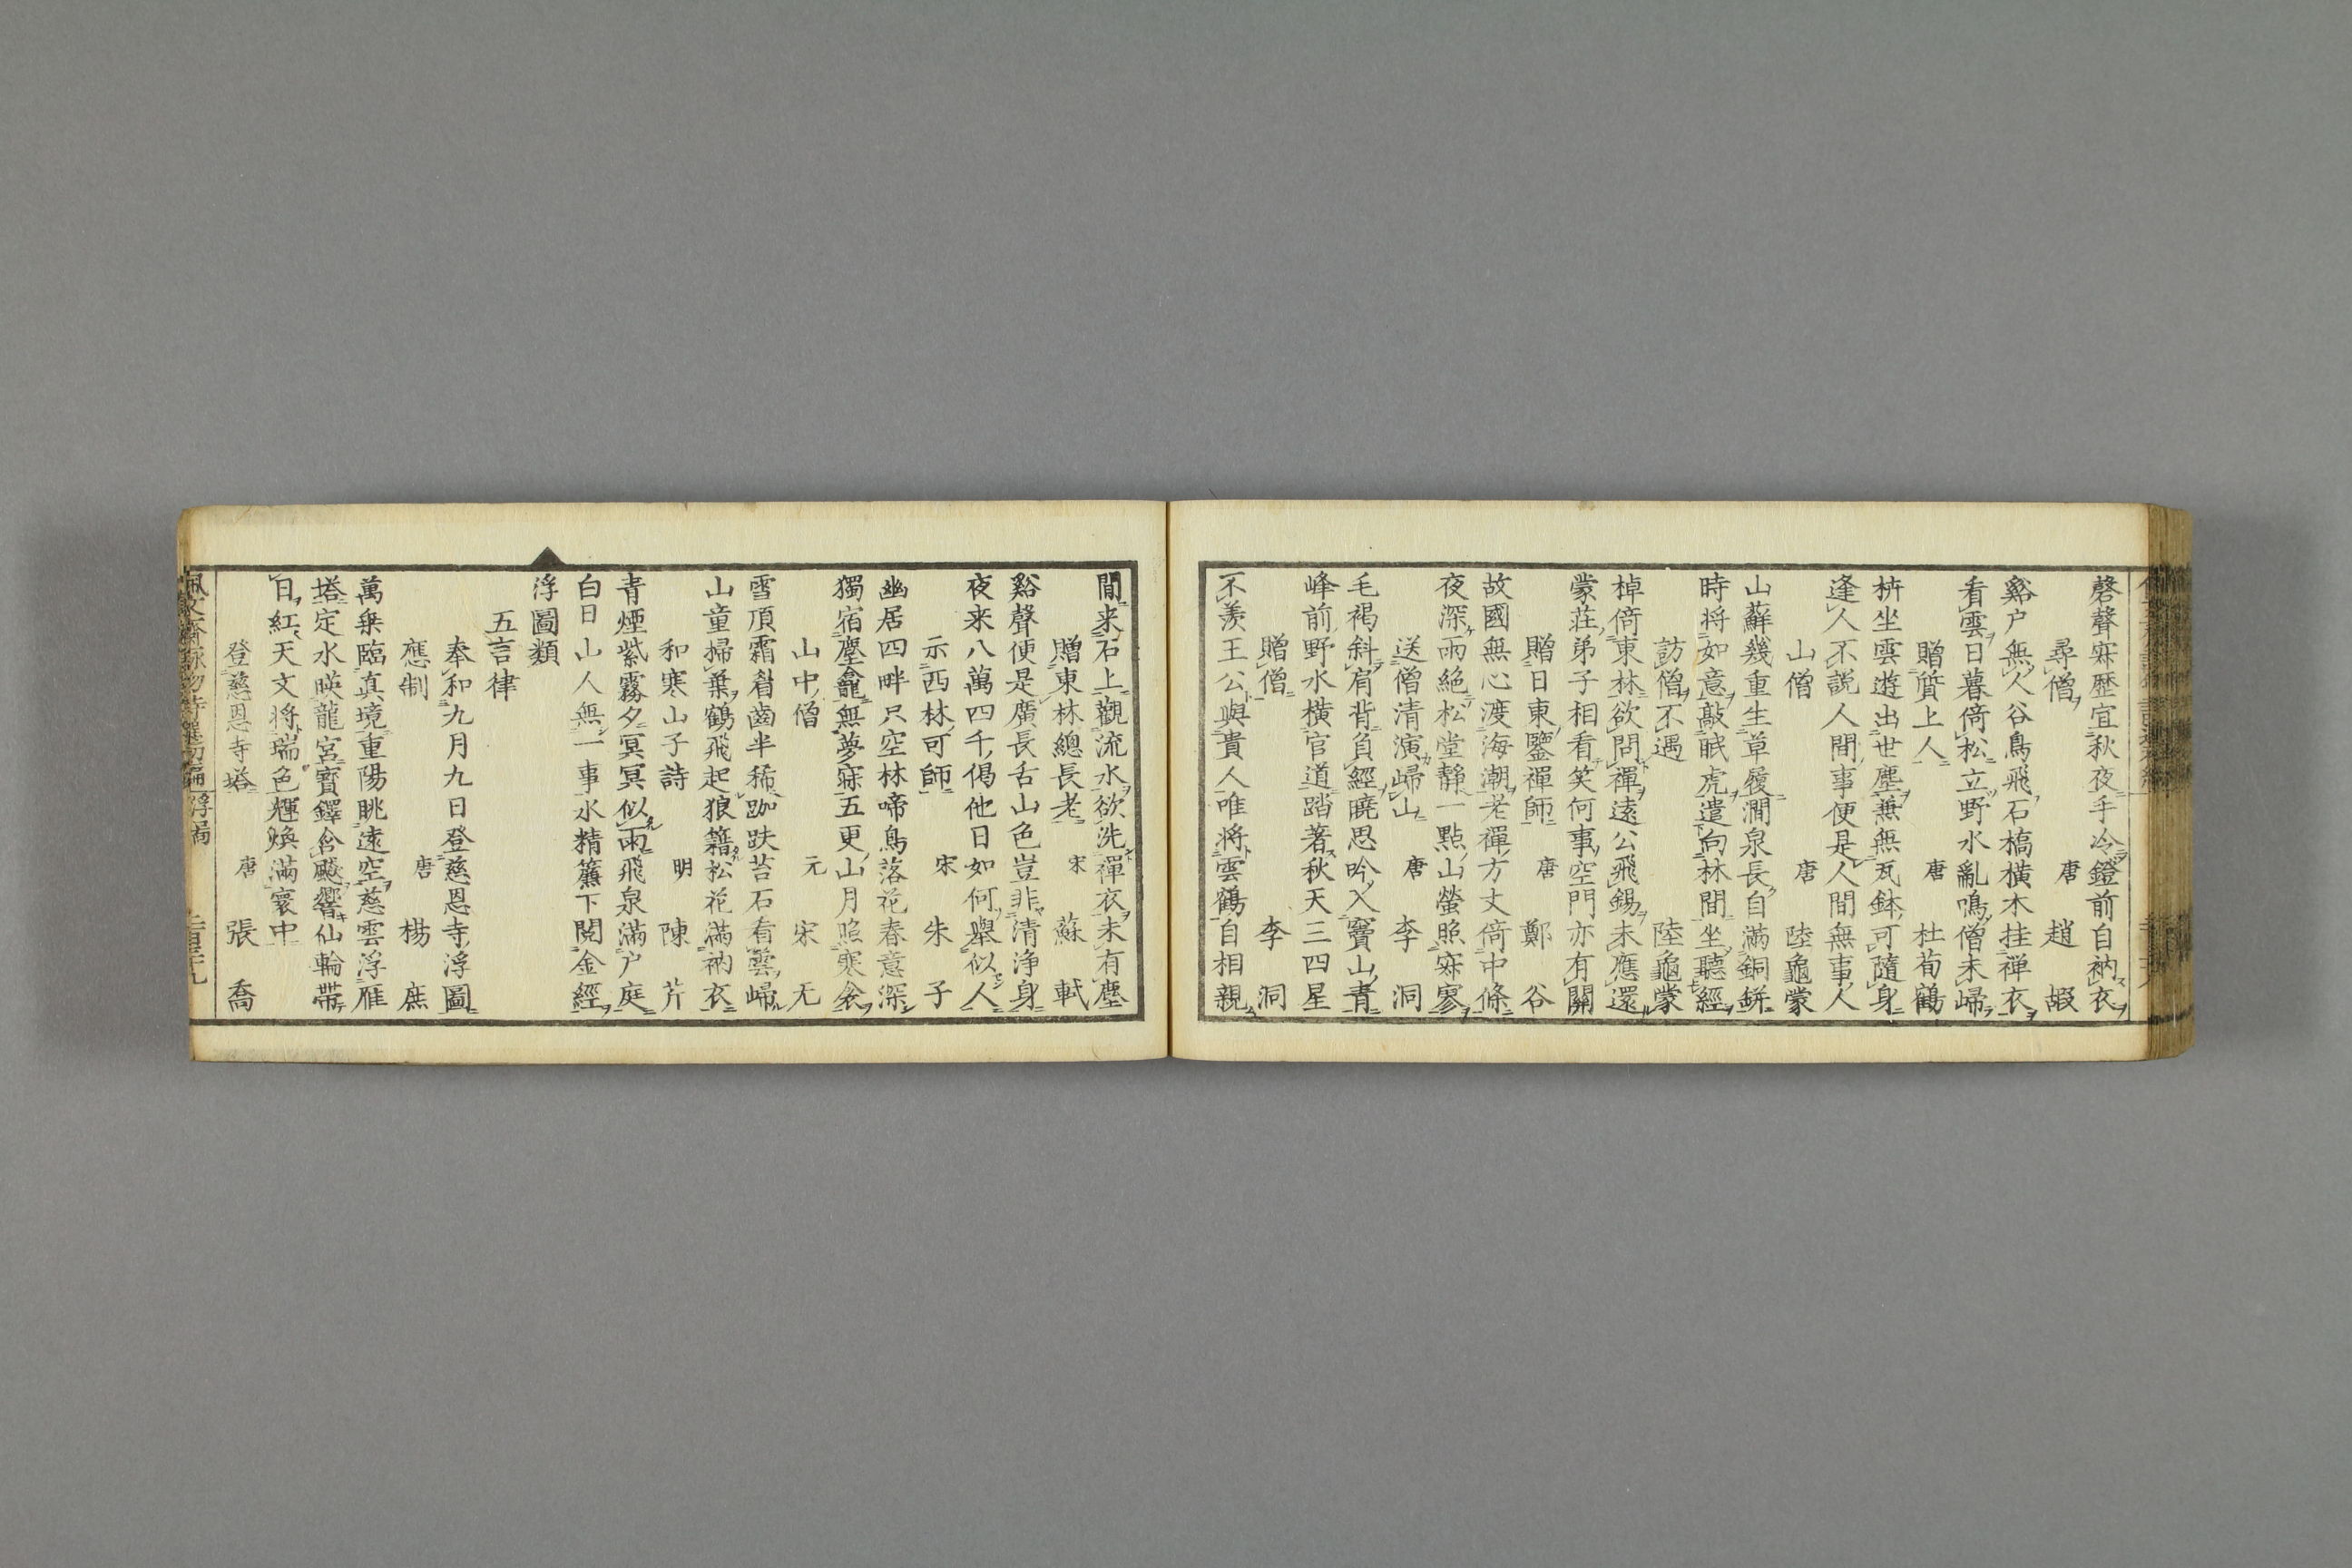 磬聲寐歷宜秋夜手冷鐙前自衲衣
尋僧 唐 趙 嘏
谿户無人谷鳥飛石橋橫木挂禅衣
看雲日暮倚松立野水亂鳴僧未歸
贈質上人 唐 杜荀鶴
枿坐雲遊出世塵蕪無瓦鉢可隨身
逢人不説人間事便是人間無事人
山僧 唐 陸龜蒙
山蘚幾重生草履澗泉長自滿銅缾
時将如意敲眠虎遣向林間坐聽經
訪僧不遇 陸龜蒙
棹倚東林欲問禪遠公飛錫未應還
蒙莊弟子相看笑何事空門亦有關
贈日東鑒禪師 唐 鄭 谷
故國無心渡海潮老禪方丈倚中條
夜深雨絶松堂靜一點山螢照寐寥
送僧清演歸山 唐 李 洞
毛褐斜肩背負經曉思吟入竇山青
峰前野水横官道踏著秋天三四星
贈僧 李 洞
不羨王公與貴人唯将雲鶴自相親
閒来石上觀流水欲洗禪衣未有塵
贈東林總長老 宋 蘇 軾
谿聲便是廣長舌山色豈非清浄身
夜来八萬四千偈他日如何舉似人
示西林可師 宋 朱 子
幽居四畔只空林啼鳥落花春意深
獨宿塵龕無夢寐五更山月照寒衾
山中僧 元 宋 无
雪頂霜眉齒半稀跏趺苔石看雲歸
山童掃葉鶴飛起狼籍松花滿衲衣
和寒山子詩 明 陳 芹
青煙紫霧夕冥冥似雨飛泉滿户庭
白日山人無一事水精簾下閲金經
浮圖類
五言律
奉和九月九日登慈恩寺浮圖
應制 唐 楊 庶
萬乗臨真境重陽眺遠空慈雲浮雁
塔定水暎龍宮寳鐸含飈響仙輪帯
日紅天文将瑞色輝焕滿寰中
登慈恩寺塔 唐 張 喬
佩文齋詠物詩選初編 浮圖